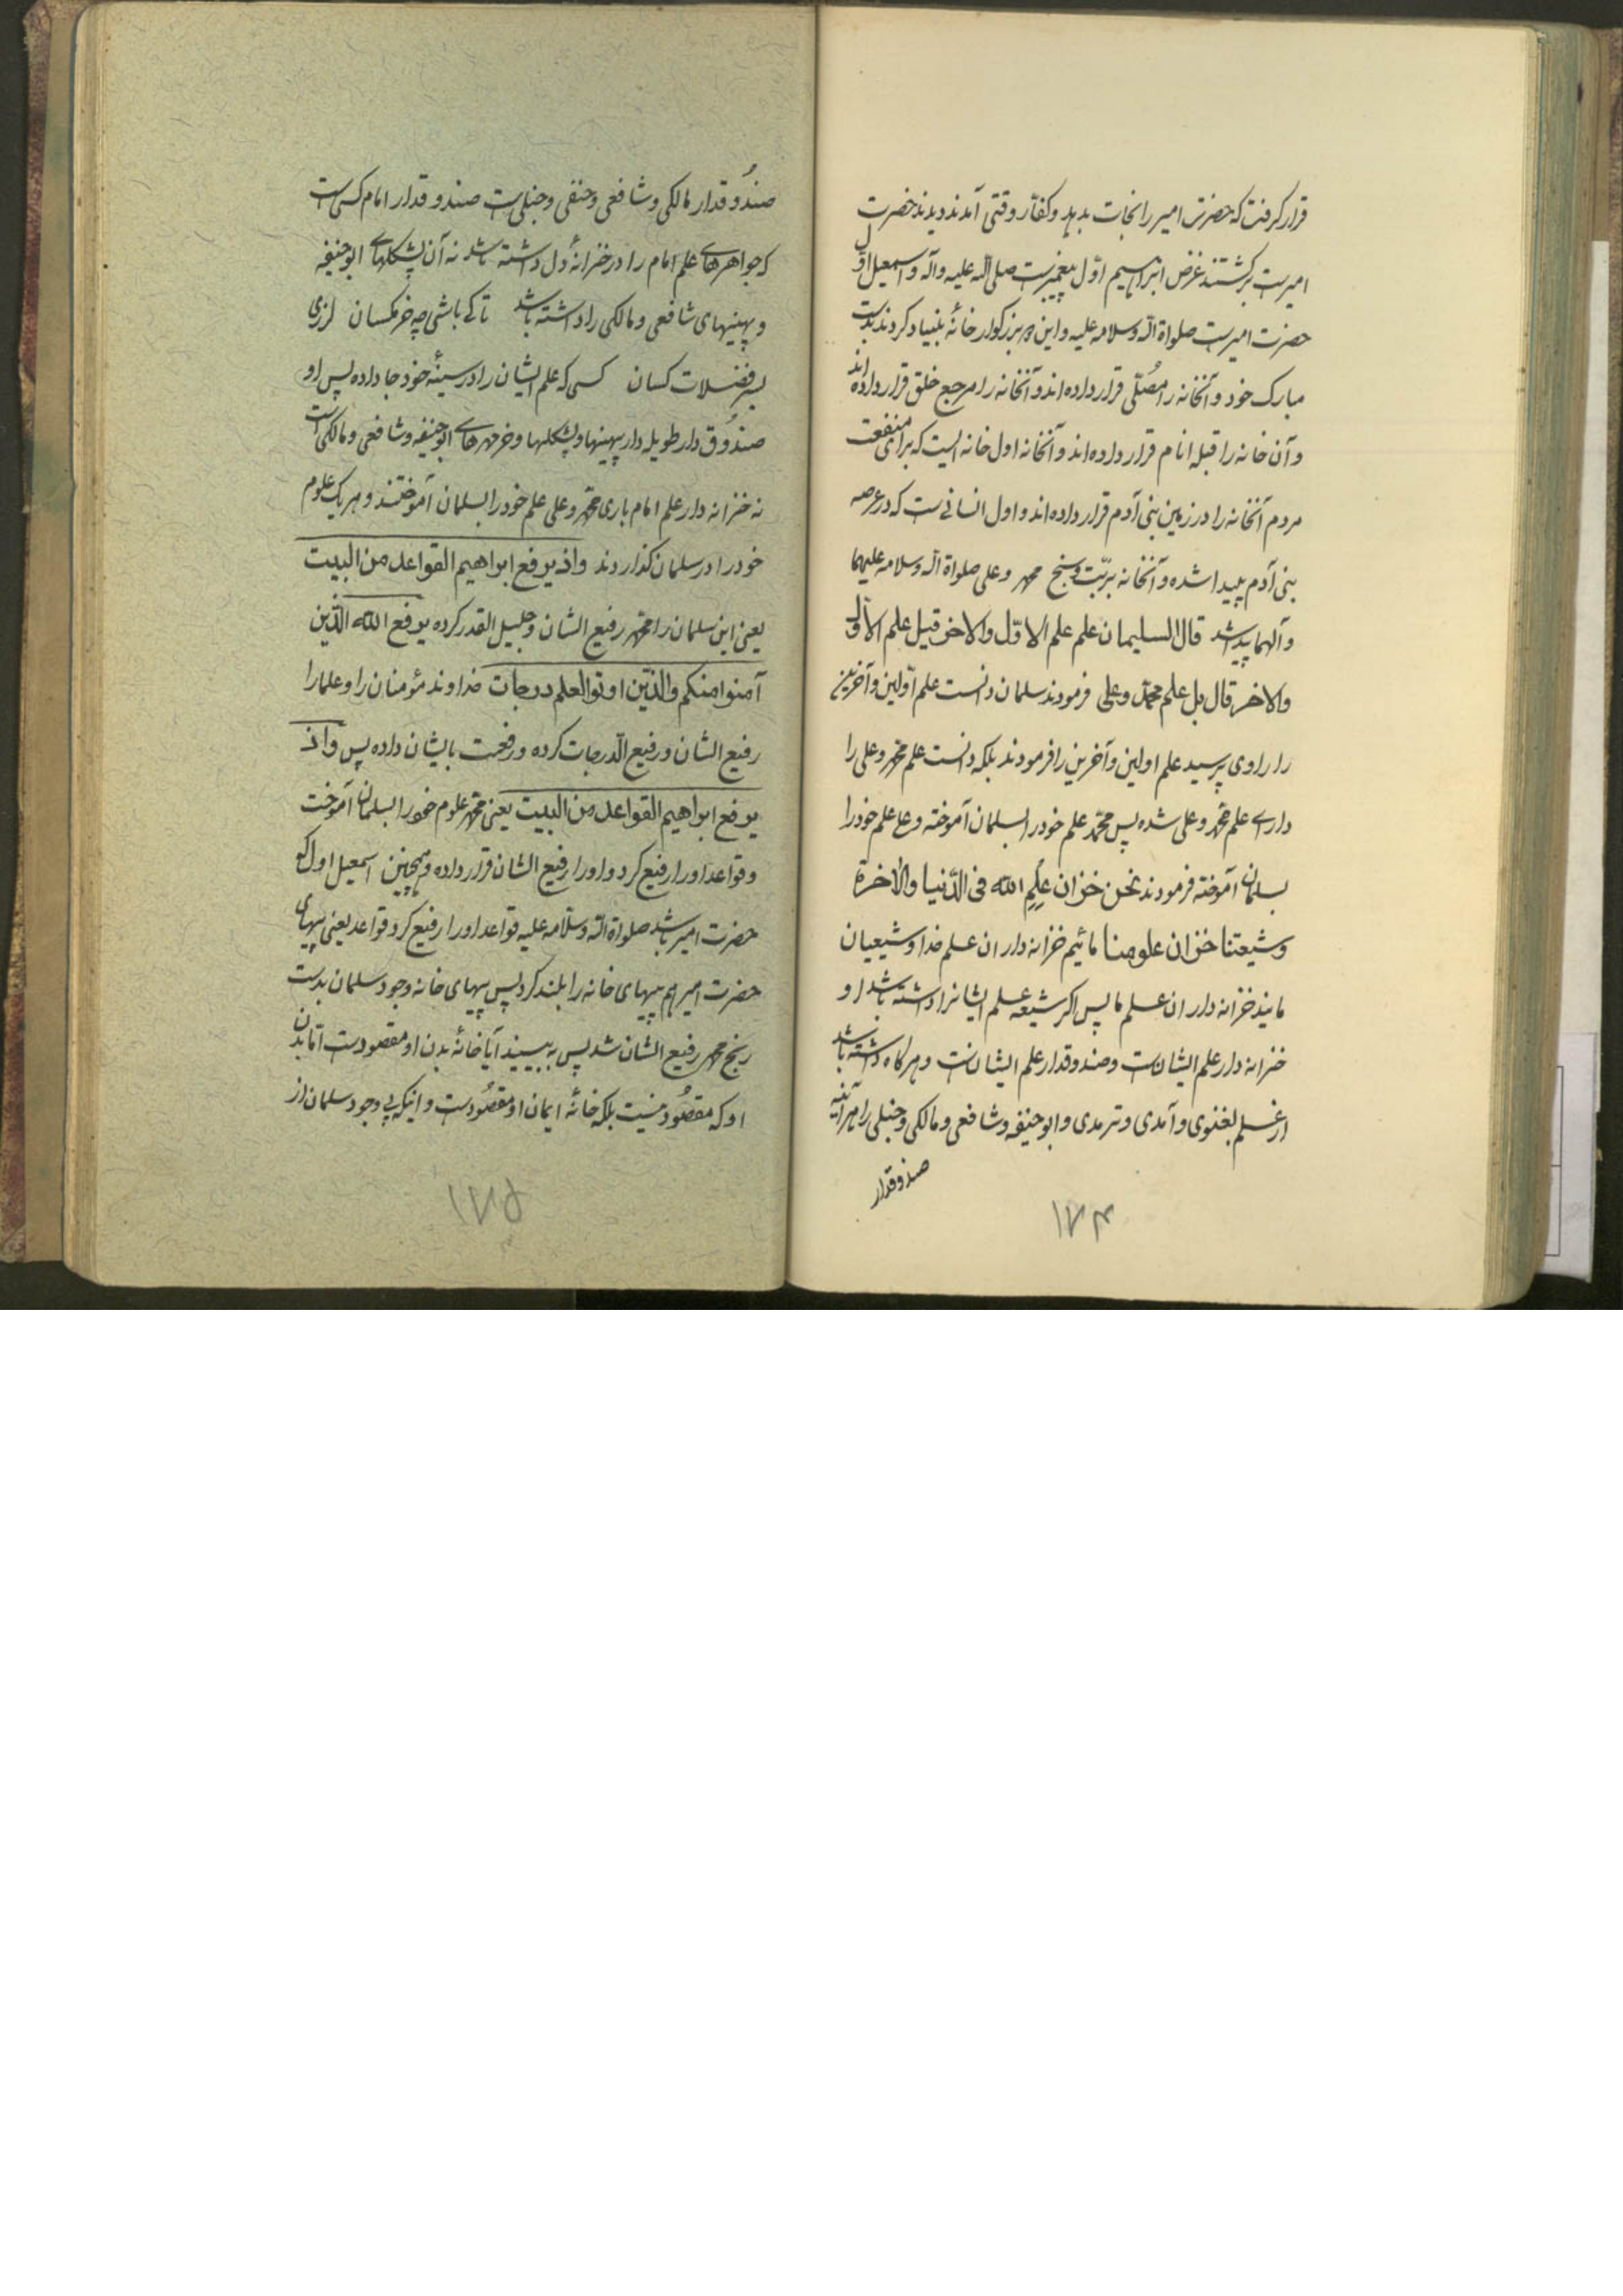 قرار گرفت که حضرت امیر را نجات بدهد و کفار وقتی آمدند دیدند حضرت
امیرست برگشتند غرض ابراهیم اوّل پیغمبرست صلی الله علیه وآله و اسمعیل اوّل
حضرت امیرست صلواة الله وسلامه علیه و این بزرگوار خانهٔ بنیاد کردند بدست
مبارک خود و آنخانه را مُصلّی قرار داده‌اند و آنخانه را مرجع خلق قرار داده‌اند
و آن خانه را قبله انام قرار داده‌اند و آنخانه اول خانه ایست که برای منفعت
مردم آنخانه را در زمین بنی آدم قرار داده‌اند و اول انسانی‌ست که در عرصه
بنی آدم پیدا شده و آنخانه بدست محمد و علی صلواة الله وسلامه علیهما
وآلهما قال السلیمان علم علم الاوّل والاخر قیل علم الاوّل
والاخر قال بل علم محمّد وعلی فرمودند سلمان دانست علم اوّلین وآخرین
را راوی پرسید علم اولین وآخرین را فرمودند بلکه دانست علم محمد وعلی را
دارای علم محمد وعلی شده پس محمّد علم خود را بسلمان آموخته وعلی علم خود را
بسلمان آموخته فرمودند نحن خزان علم الله فی الدّنیا والاخرة
وشیعتنا خزان علومنا مائیم خزانه داران علم خدا و شیعیان
مایند خزانه داران علم ما پس اگر شیعه علم ایشانرا داشته باشد او
خزانه دار علم ایشانست و صندوقدار علم ایشانست و هرگاه داشته باشد
از علم لغنوی و آمدی و ترمدی و ابو حنیفه و شافعی و مالکی و حنبلی را هرآینه
صندوقدار
۱۷۴
صندُوقدار مالکی و شافعی و حنفی و حنبلی‌ست صندوقدار امام کسی است
که جواهرهای علم امام را در خزانهٔ دل داشته باشد نه آن پشکلهای ابو حنیفه
و پهینهای شافعی و مالکی را داشته باشد تا کی باشی چه خرمگسان لرزی
بسر فضلات کسان کسی که علم ایشان را در سینهٔ خود جا داده پس او
صندُوق دار طویله دار پهینها و پشکلها و خرمهرهای ابو حنیفه و شافعی و مالکی است
نه خزانه دار علم امام باری محمد و علی علم خود را بسلمان آموختند و هر یک علوم
خود را در سلمان گذاردند واذ یرفع ابراهیم القواعد من البیت
یعنی این سلمان را محمد رفیع الشان و جلیل القدر کرده یرفع الله الذّین
آمنوا منکم والذّین اوتوا العلم درجات خداوند مؤمنان را و علما را
رفیع الشان و رفیع الدّرجات کرده و رفعت بایشان داده پس واذ
یرفع ابراهیم القواعد من البیت یعنی محمد علوم خود را بسلمان آموخت
و قواعد او را رفیع کرد و او را رفیع الشان قرار داده و همچنین اسمعیل اول که
حضرت امیر باشد صلواة الله وسلامه علیه قواعد او را رفیع کرد قواعد یعنی پیهای
حضرت امیر هم پیهای خانه را بلند کرد پس پیهای خانه وجود سلمان بدست
رنج محمد رفیع الشان شد پس به بینید آیا خانهٔ بدن او مقصودست امّا بدن
او که مقصُود نیست بلکه خانهٔ ایمان او مقصُودست و اینکه پی وجود سلمان از
۱۷۵